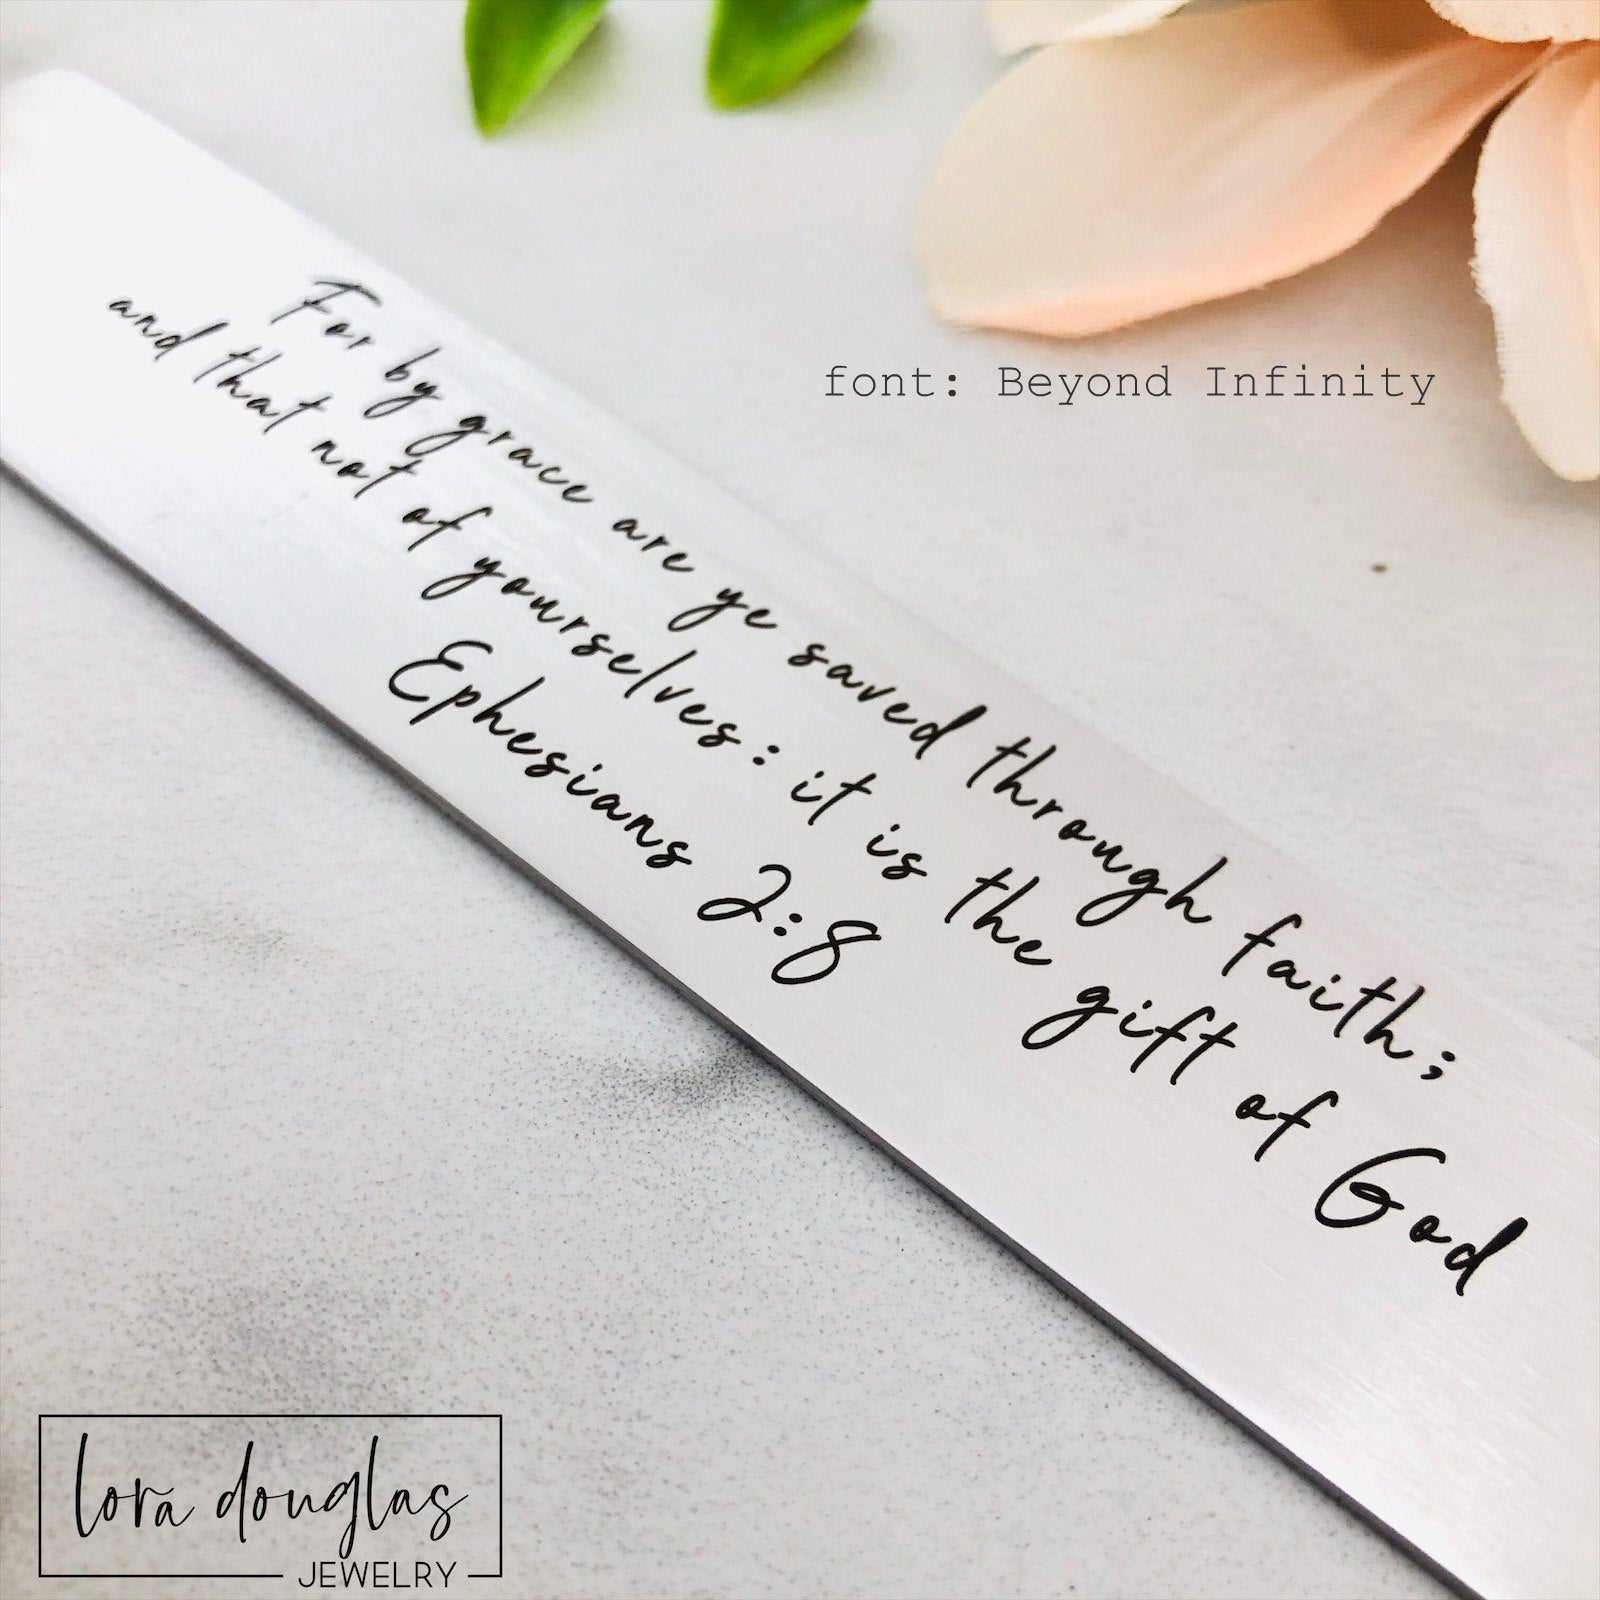 For by grace are ye saved through faith;
and that not of yourselves: it is the gift of God
Ephesians 2:8
font: Beyond Infinity
lora douglas
JEWELRY